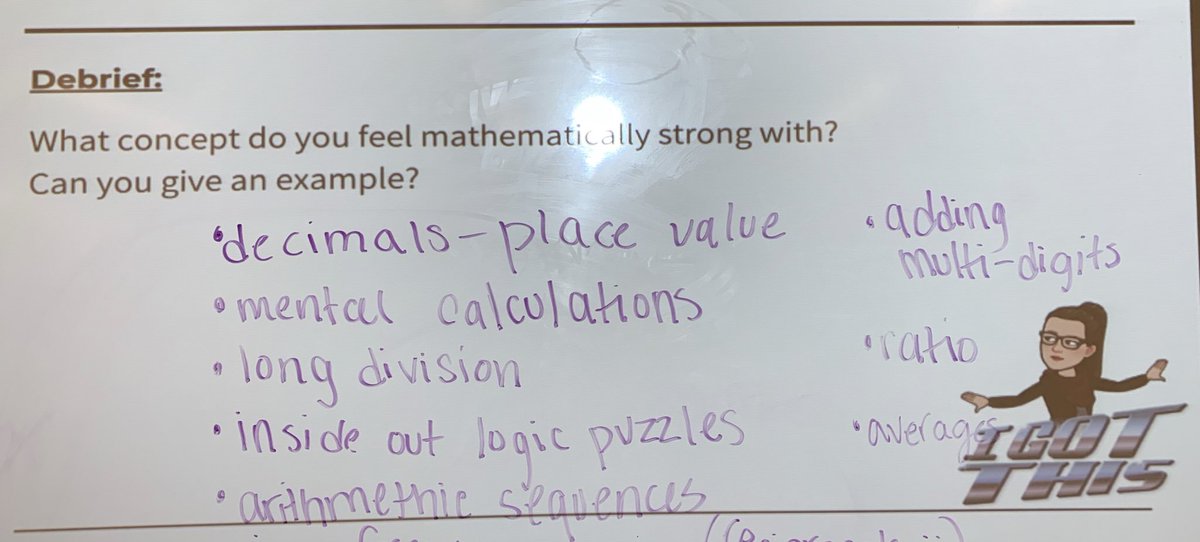 Debrief:
What concept do you feel mathematically strong with?
Can you give an example?
• decimals - place value
• mental calculations
• long division
• inside out logic puzzles
• arithmethic sequences
• adding
multi-digits
• ratio
• averages
I GOT
THIS